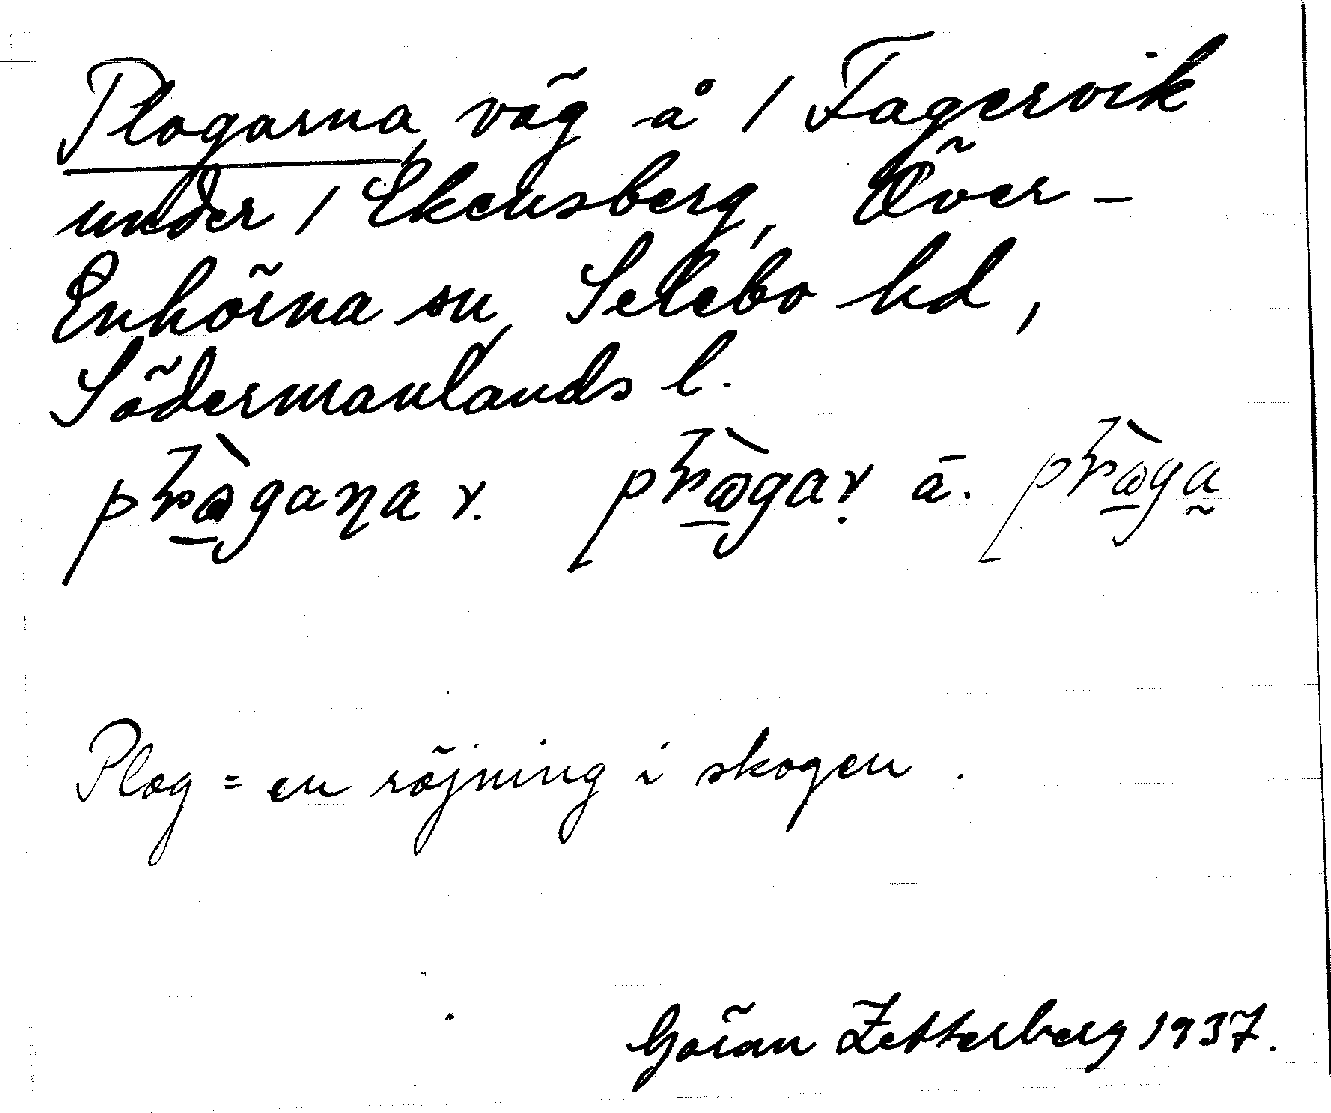 Plogarna, väg å / Fagervik
under / Ekensberg, Över-
Enhörna sn, Selebo hd,
Södermanlands l.
Plog = en röjning i skogen.
Göran Zetterberg 1937.